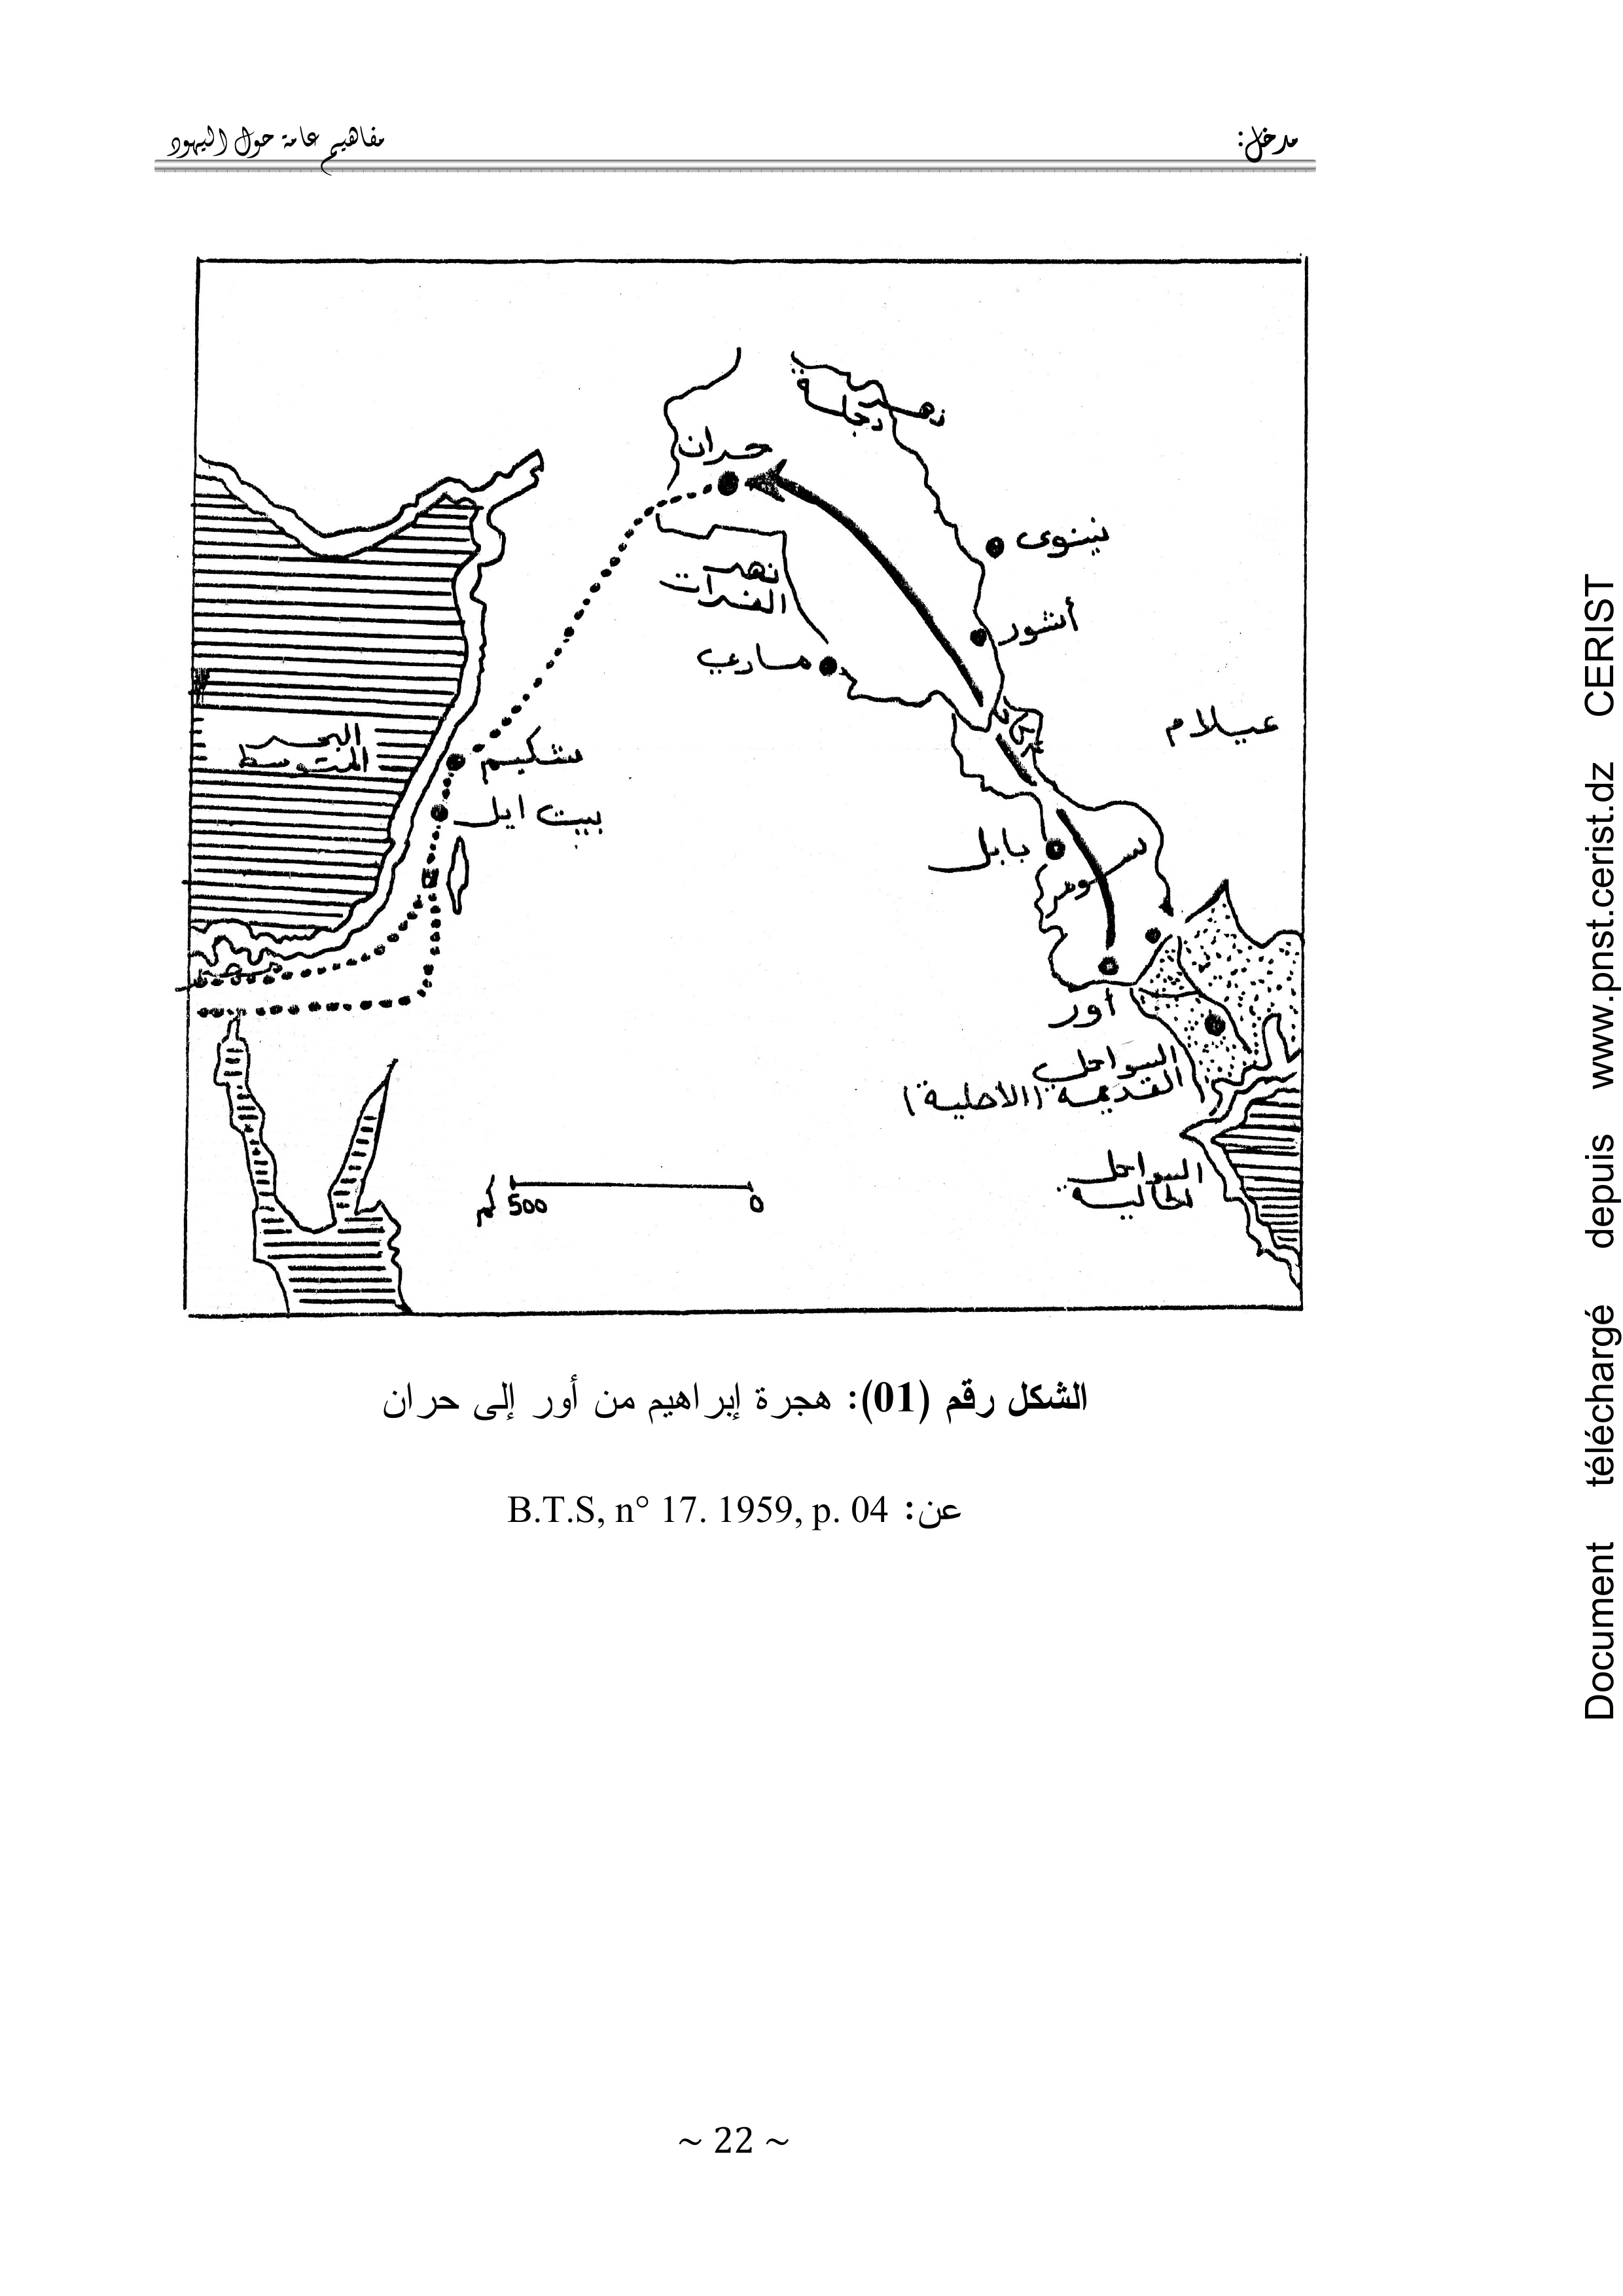 مدخل:
مفاهيم عامة حول اليهود
نهر
دجلة
حران
نينوى
نهر
الفرات
أشور
ماري
عيلام
البحر
المتوسط
شكيم
بيت ايل
بابل
سومر
مصر
أور
السواحل
القديمة (الأصلية)
السواحل
الحالية
0
500 كم
الشكل رقم (01): هجرة إبراهيم من أور إلى حران
عن: B.T.S, n° 17. 1959, p. 04
~ 22 ~
Document téléchargé depuis www.pnst.cerist.dz CERIST